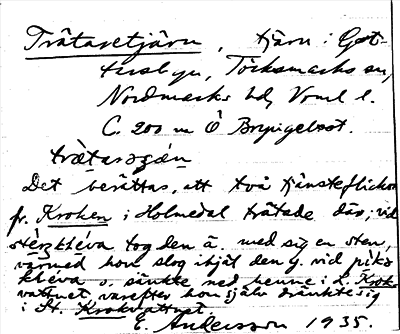 Trätaretjärn, tjärn i Göt-
tersbyn, Töcksmarks sn,
Nordmarks hd, Vrml l.
C. 200 m Ö Bryngelsbot.
Det berättas, att två tjänsteflickor
fr. Kroken i Holmedal trätade där; vid
tog den ä. med sig en sten,
varmed hon slog ihjäl den y. vid
o. sänkte ned henne i L. Krok-
vattnet varefter hon själv dränkte sig
i St. Krokvattnet.
E. Andersson 1935.